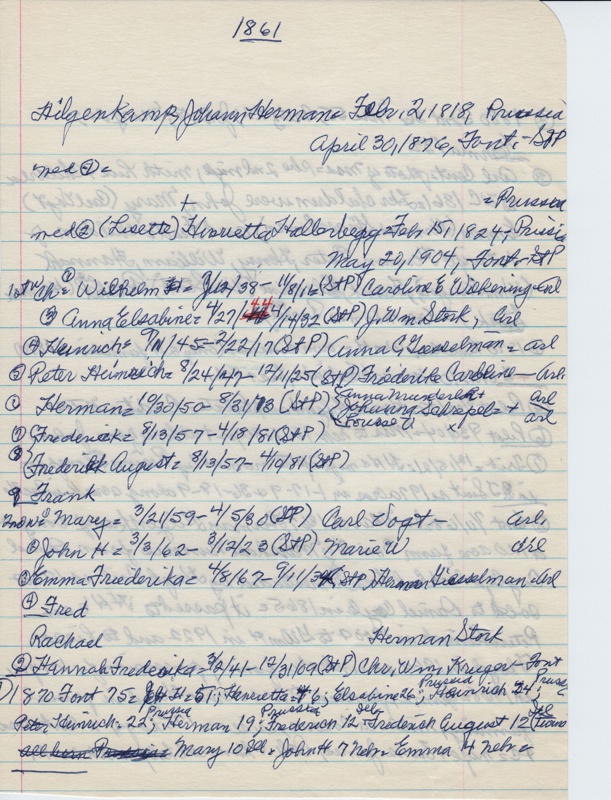 1861
Hilgenkamp, Johann Herman Feb, 2, 1818, Prussia
April 30, 1876, Font, - StP
med ① =
+ = Prussia
med ② (Lisette) Henrietta Hallerberg = Feb 15, 1824, Prussia
May 20, 1904, Font, StP
1st w Ch = ① Wilhelm = 9/12/38 - 11/8/16 (StP) Caroline E Wickening - Arl
③ Anna Elsabine = 4/27/44 4/14/32 (StP) J. Wm Stork, Arl
④ Heinrich = 9/11/45 = 2/22/17 (StP) Anna C, Giesselman = Arl
⑤ Peter Heinrich = 8/24/47 - 12/11/25 (StP) Frederike Caroline - Arl.
Herman = 10/30/50 - 8/31/13 (StP) Johanna Schrepel = + Arl
Louise U Arl
⑦ Frederick = 8/13/57 - 4/18/81 (StP)
⑧ Frederick August = 8/13/57 - 4/10/81 (StP)
9 Frank
2nd w ① Mary = 3/21/59 - 4/5/30 (StP) Carl Vogt - Arl.
② John H = 3/3/62 - 3/12/23 (StP) Marie W Arl
③ Emma Friederika = 4/8/67 - 9/11/34 (StP) Herman Giesselman - Arl
④ Fred
Rachael Herman Stork
② Hannah Frederika = 3/2/41 - 12/31/09 (StP) Chr, Wm, Kruger - Font
1870 Font 75 = H = 51; Henrietta = 46; Elsabine 26; Prussia Heinrich 24; Pruss
Peter Heinrich = 22; Prussia Herman 19; Prussia Frederick 12 = Frederick August 12
all born Prussia = Mary 10 Ill = John H 7 Nebr = Emma 4 Nebr =